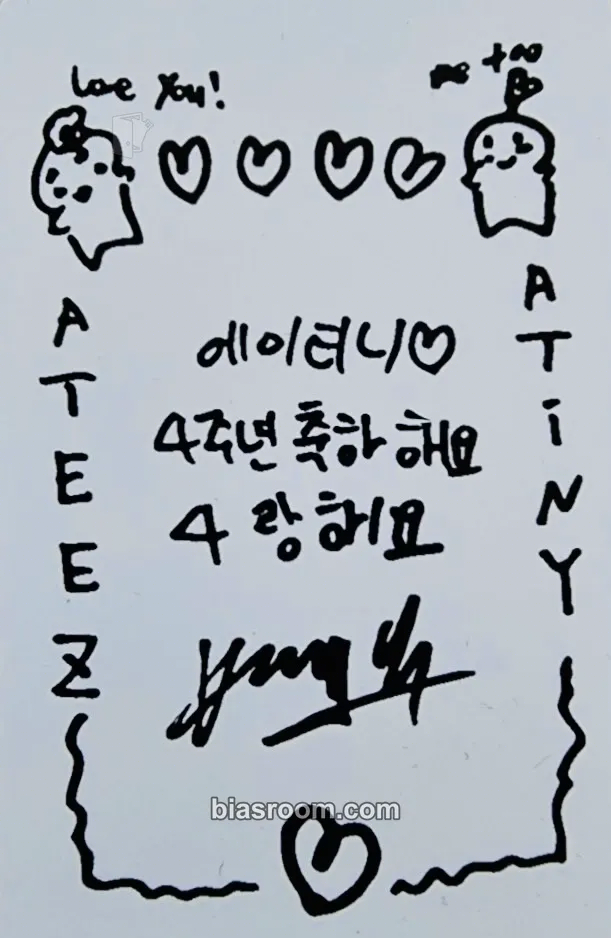 love you!
me too
ATEEZ
ATiNY
에이티니♡
4주년 축하해요
4랑해요
biasroom.com